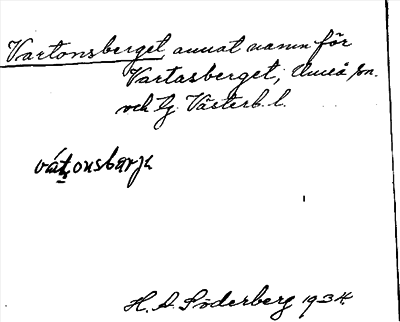 Vartonsberget, annat namn för
Vartasberget, Umeå sn.
och tg. Västerb. l.
H. A. Söderberg 1934.